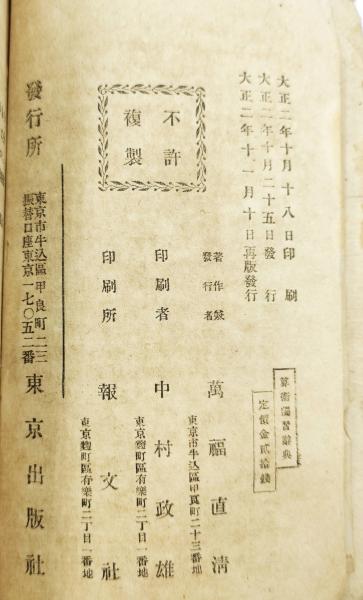 大正二年十月十八日印刷
大正二年十月二十五日發行
大正二年十一月十日再版發行
算術講習辭典
定價金貳拾錢
不許
複製
著作兼
發行者
萬福直淸
東京市牛込區甲良町二十三番地
印刷者
中村政雄
東京麴町區有樂町二丁目一番地
印刷所
報文社
東京麴町區有樂町二丁目一番地
發行所
東京市牛込區甲良町二三
振替口座東京一七〇五二番
東京出版社